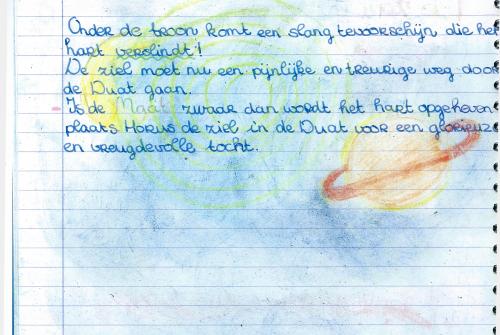 Onder de troon komt een slang tevoorschijn die het
hart verslindt!
De ziel moet nu een pijnlijke en treurige weg door
de Duat gaan.
Is de Maat zwaar dan wordt het hart opgeheven
plaats Horus de ziel in de Duat voor een glorieuze
en vreugdevolle tocht.